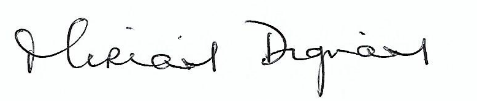 Miriam Dignam